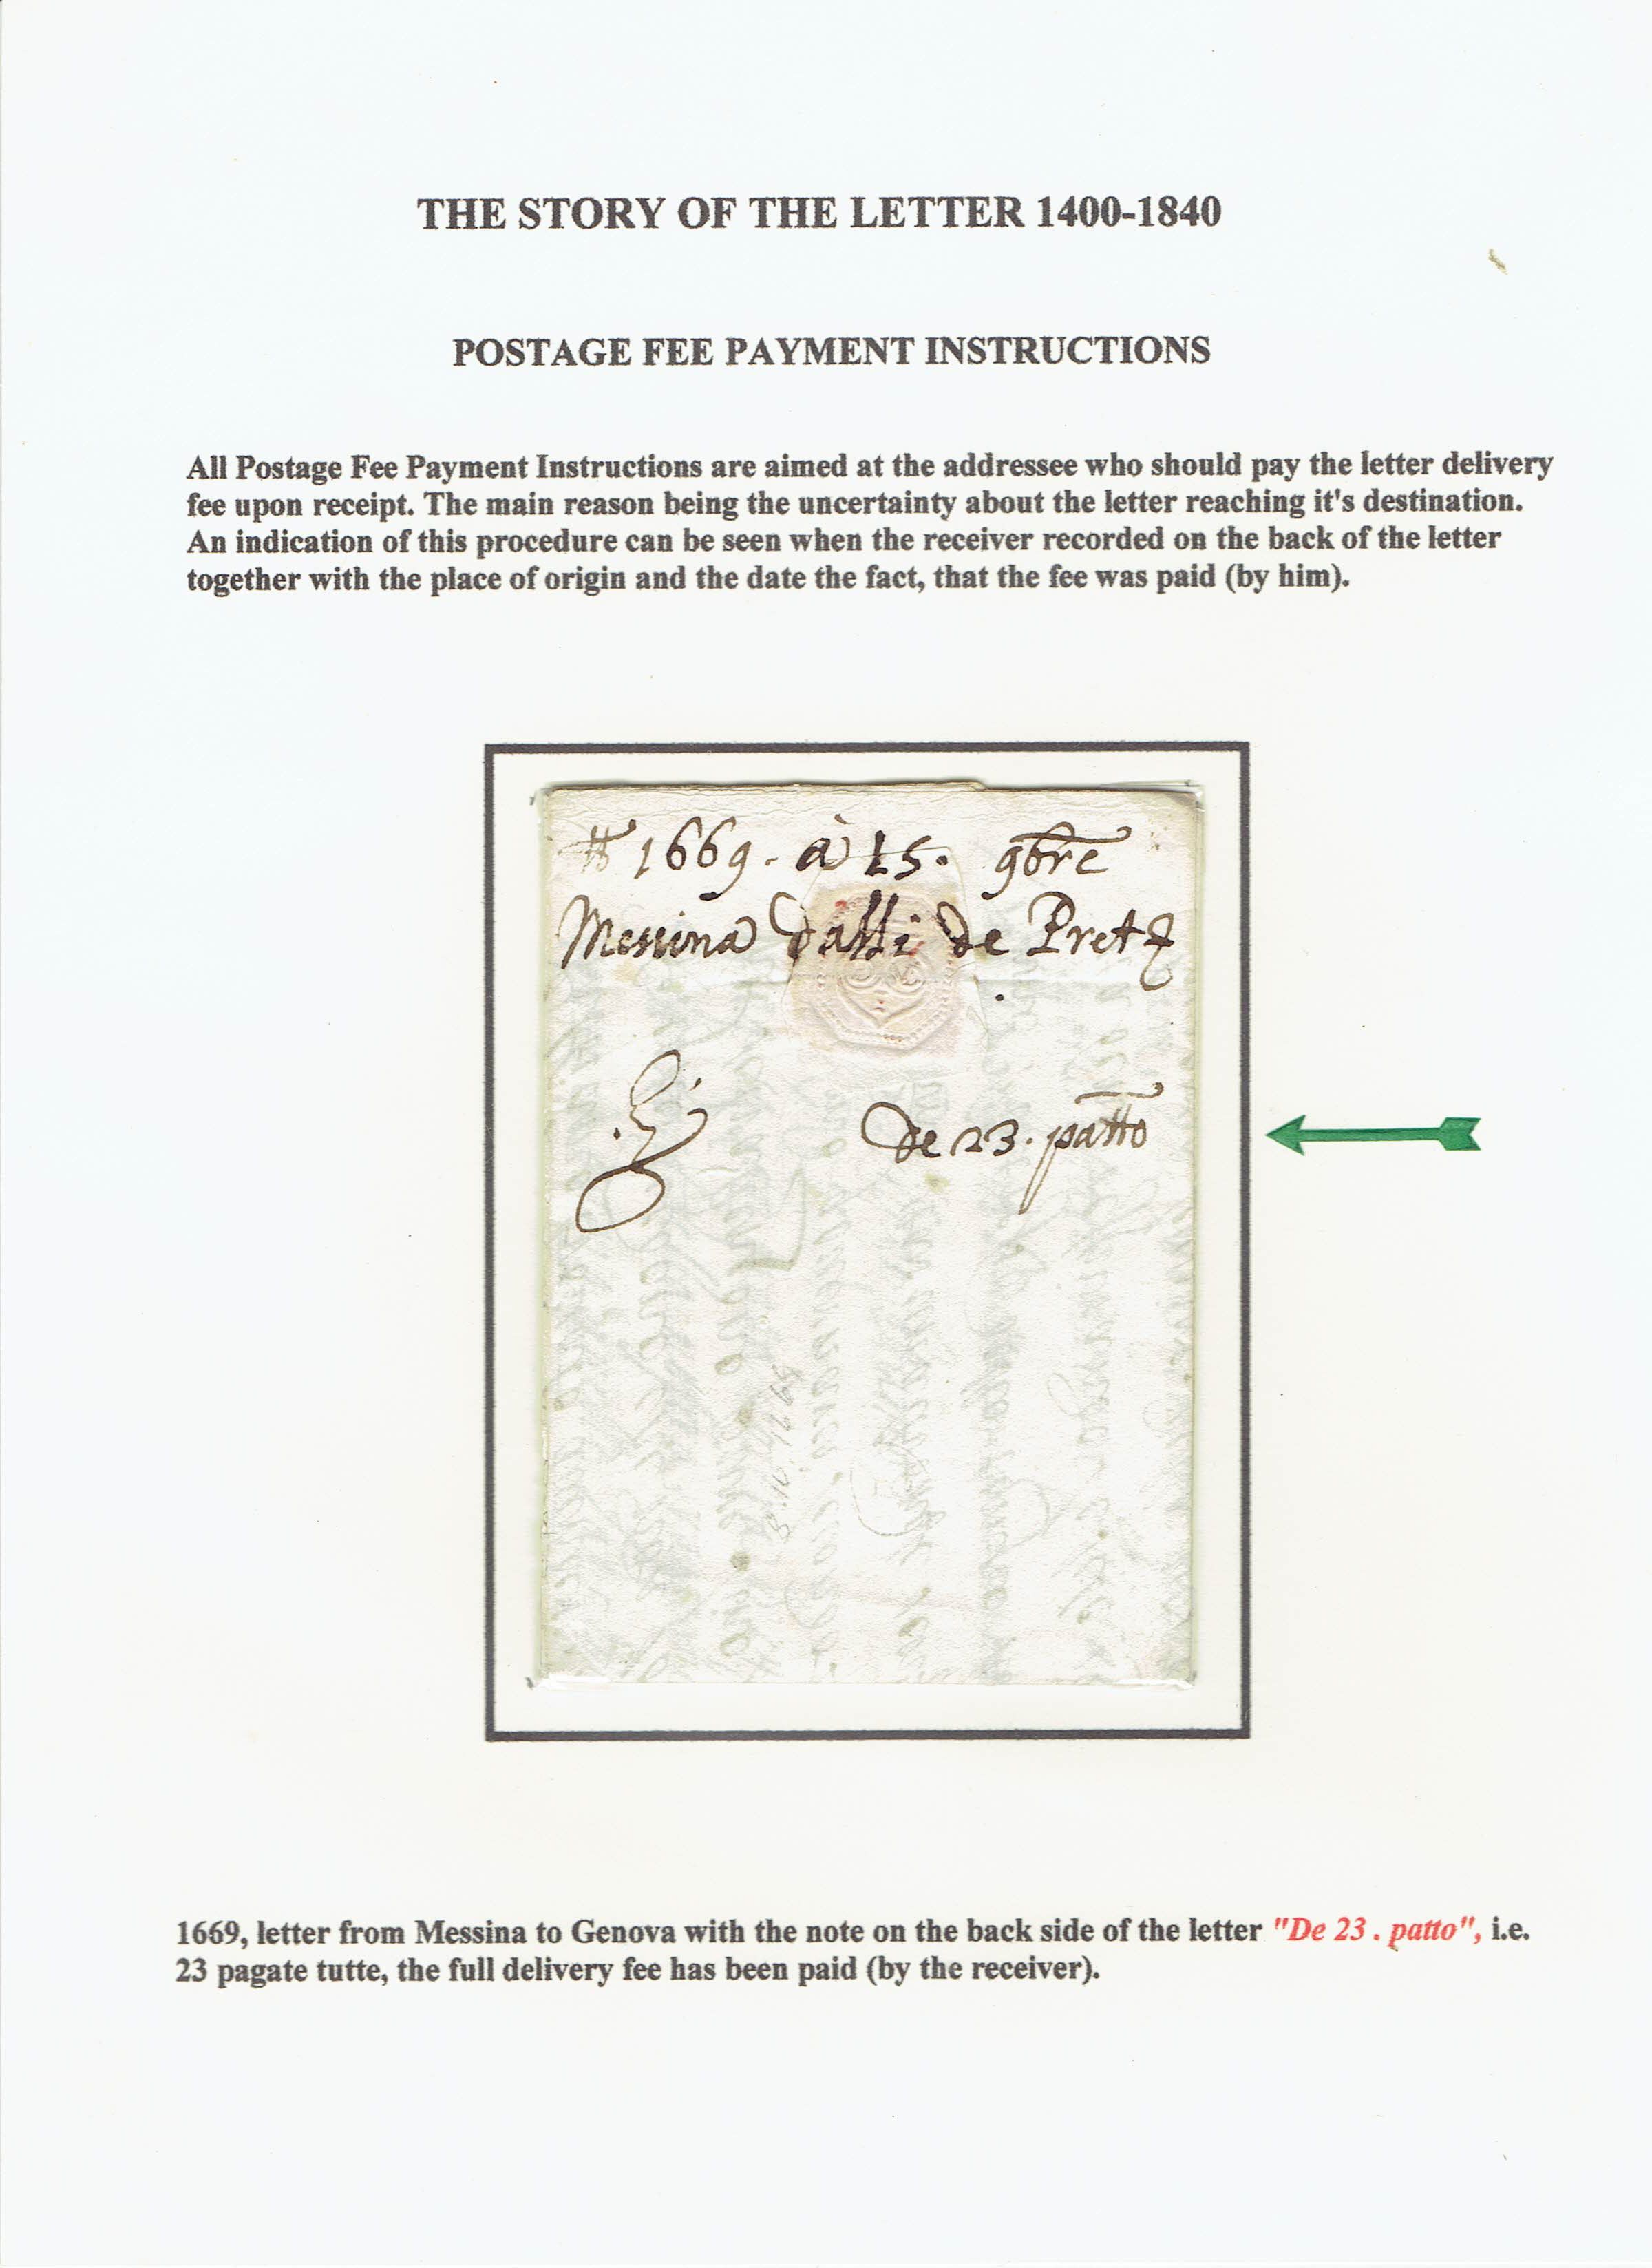 THE STORY OF THE LETTER 1400-1840
POSTAGE FEE PAYMENT INSTRUCTIONS
All Postage Fee Payment Instructions are aimed at the addressee who should pay the letter delivery
fee upon receipt. The main reason being the uncertainty about the letter reaching it's destination.
An indication of this procedure can be seen when the receiver recorded on the back of the letter
together with the place of origin and the date the fact, that the fee was paid (by him).
1669. à 15. 9bre
Messina de Pret
De 23. patto
1669, letter from Messina to Genova with the note on the back side of the letter "De 23 . patto", i.e.
23 pagate tutte, the full delivery fee has been paid (by the receiver).